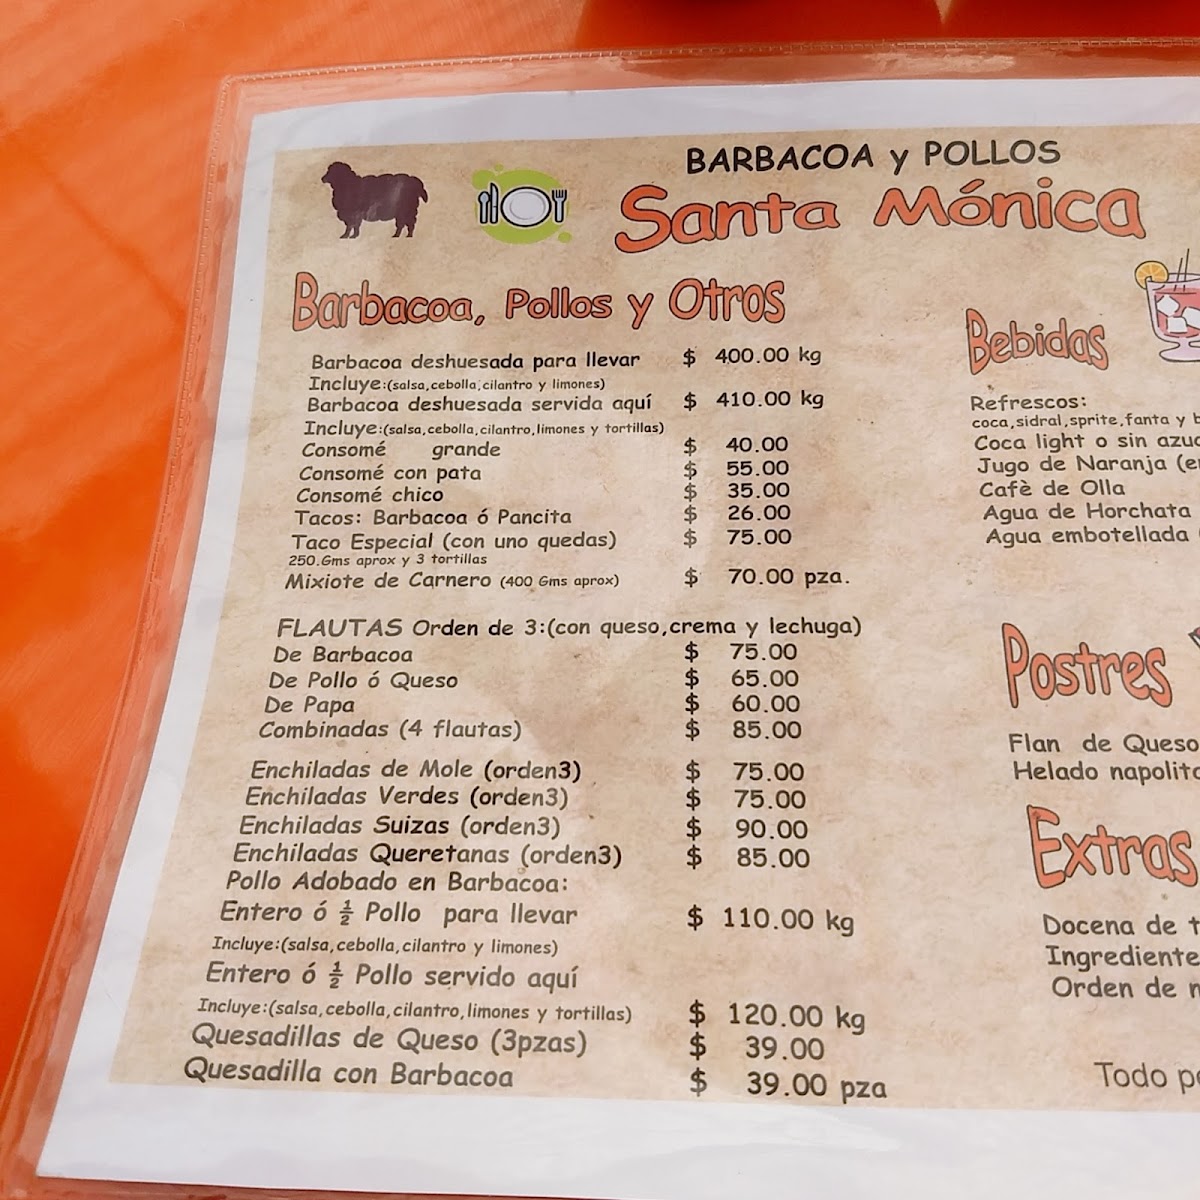 BARBACOA y POLLOS
Santa Mónica
Barbacoa, Pollos y Otros
Barbacoa deshuesada para llevar $ 400.00 kg
Incluye:(salsa,cebolla,cilantro y limones)
Barbacoa deshuesada servida aquí $ 410.00 kg
Incluye:(salsa,cebolla,cilantro,limones y tortillas)
Consomé grande $ 40.00
Consomé con pata $ 55.00
Consomé chico $ 35.00
Tacos: Barbacoa ó Pancita $ 26.00
Taco Especial (con uno quedas) $ 75.00
250.Gms aprox y 3 tortillas
Mixiote de Carnero (400 Gms aprox) $ 70.00 pza.
FLAUTAS Orden de 3:(con queso,crema y lechuga)
De Barbacoa $ 75.00
De Pollo ó Queso $ 65.00
De Papa $ 60.00
Combinadas (4 flautas) $ 85.00
Enchiladas de Mole (orden3) $ 75.00
Enchiladas Verdes (orden3) $ 75.00
Enchiladas Suizas (orden3) $ 90.00
Enchiladas Queretanas (orden3) $ 85.00
Pollo Adobado en Barbacoa:
Entero ó ½ Pollo para llevar $ 110.00 kg
Incluye:(salsa,cebolla,cilantro y limones)
Entero ó ½ Pollo servido aquí
Incluye:(salsa,cebolla,cilantro,limones y tortillas) $ 120.00 kg
Quesadillas de Queso (3pzas) $ 39.00
Quesadilla con Barbacoa $ 39.00 pza
Bebidas
Refrescos:
coca,sidral,sprite,fanta y
Coca light o sin
Jugo de Naranja
Cafè de Olla
Agua de Horchata
Agua embotellada
Postres
Flan de Queso
Helado
Extras
Docena de
Orden de
Todo